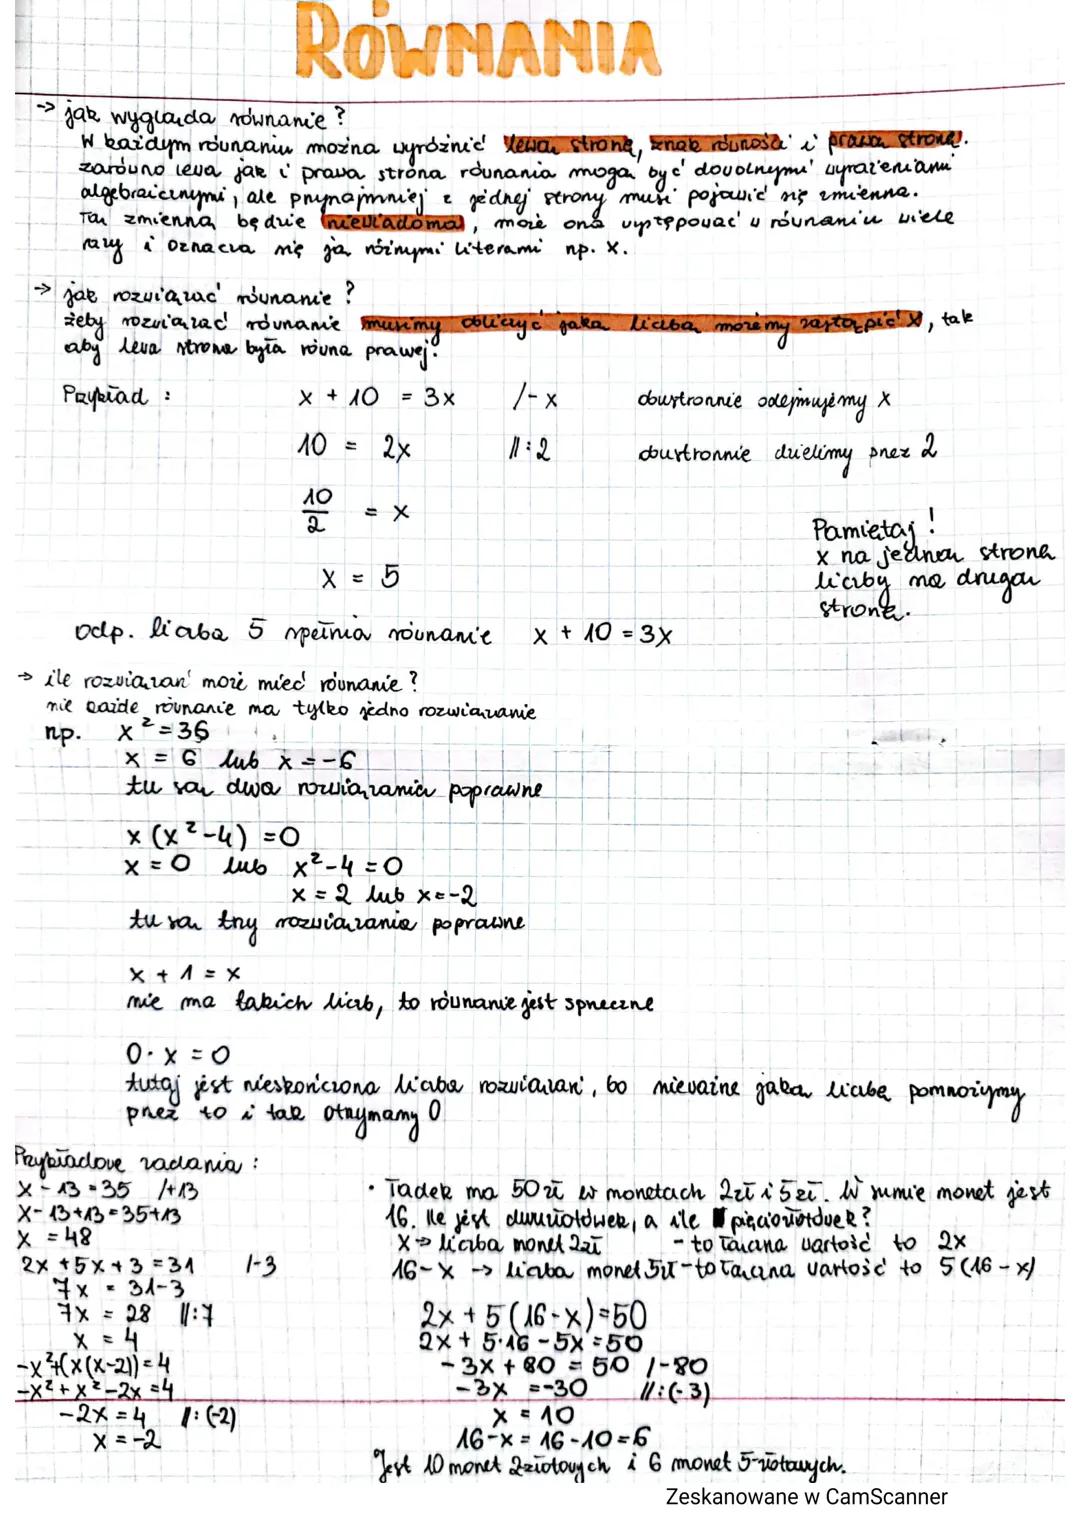 RÓWNANIA
→ jak wygląda równanie?
W każdym równaniu można wyróżnić lewą stronę, znak równości i prawą stronę.
zarówno lewa jak i prawa strona równania mogą być dowolnymi wyrażeniami
algebraicznymi, ale przynajmniej z jednej strony musi pojawić się zmienna.
Tą zmienną będzie niewiadoma, może ona występować w równaniu wiele
razy i oznacza się ją różnymi literami np. x.
→ jak rozwiązać równanie?
żeby rozwiązać równanie musimy obliczyć jaką liczbą możemy zastąpić x, tak
aby lewa strona była równa prawej.
Przykład :
x + 10 = 3x /-x obustronnie odejmujemy x
10 = 2x //:2 obustronnie dzielimy przez 2
10/2 = x
Pamiętaj!
x na jedną stronę
liczby na drugą
stronę.
x = 5
odp. liczba 5 spełnia równanie x + 10 = 3x
→ ile rozwiązań może mieć równanie?
nie każde równanie ma tylko jedno rozwiązanie
np. x² = 36
x = 6 lub x = -6
tu są dwa rozwiązania poprawne
x (x² - 4) = 0
x = 0 lub x² - 4 = 0
x = 2 lub x = -2
tu są trzy rozwiązania poprawne
x + 1 = x
nie ma takich liczb, to równanie jest sprzeczne
0 · x = 0
tutaj jest nieskończona liczba rozwiązań, bo nieważne jaką liczbę pomnożymy
przez to i tak otrzymamy 0
Przykładowe zadania :
x - 13 = 35 /+13
x - 13 + 13 = 35 + 13
x = 48
2x + 5x + 3 = 31 /-3
7x = 31-3
7x = 28 //:7
x = 4
-x²+(x(x-2)) = 4
-x² + x² - 2x = 4
-2x = 4 //:(-2)
x = -2
• Tadek ma 50 zł w monetach 2zł i 5zł. W sumie monet jest
16. Ile jest dwuzłotówek, a ile pięciozłotówek?
x → liczba monet 2zł - to łączna wartość to 2x
16-x → liczba monet 5zł - to łączna wartość to 5(16-x)
2x + 5(16-x) = 50
2x + 5·16 - 5x = 50
-3x + 80 = 50 /-80
-3x = -30 //:(-3)
x = 10
16-x = 16-10 = 6
Jest 10 monet 2złotowych i 6 monet 5-złotowych.
Zeskanowane w CamScanner